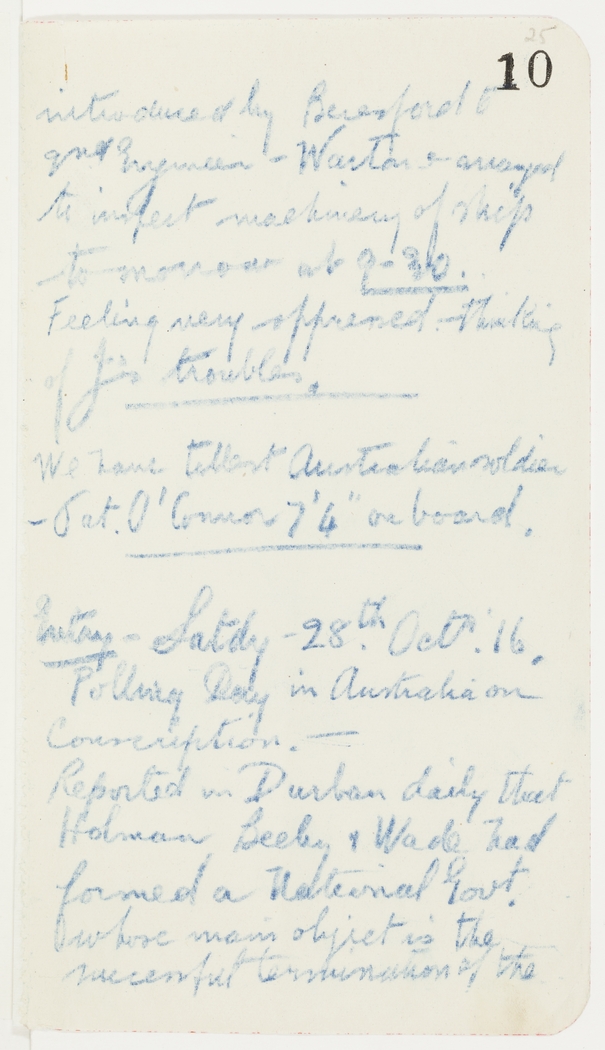 25
10
introduced by Beresford to
2nd Engineer - Warton & arranged
to inspect machinery of ship
to-morrow at 9-30.
Feeling very oppressed - thinking
of J's troubles.
We have tallest Australian soldier
- Pat. O'Connor 7'4" on board.
- Satdy - 28.th Octr. '16.
Polling Day in Australia on
Conscription. —
Reported in Durban daily that
Holman Beeby & Wade had
formed a National Govt.
whose main object is the
successful termination of the